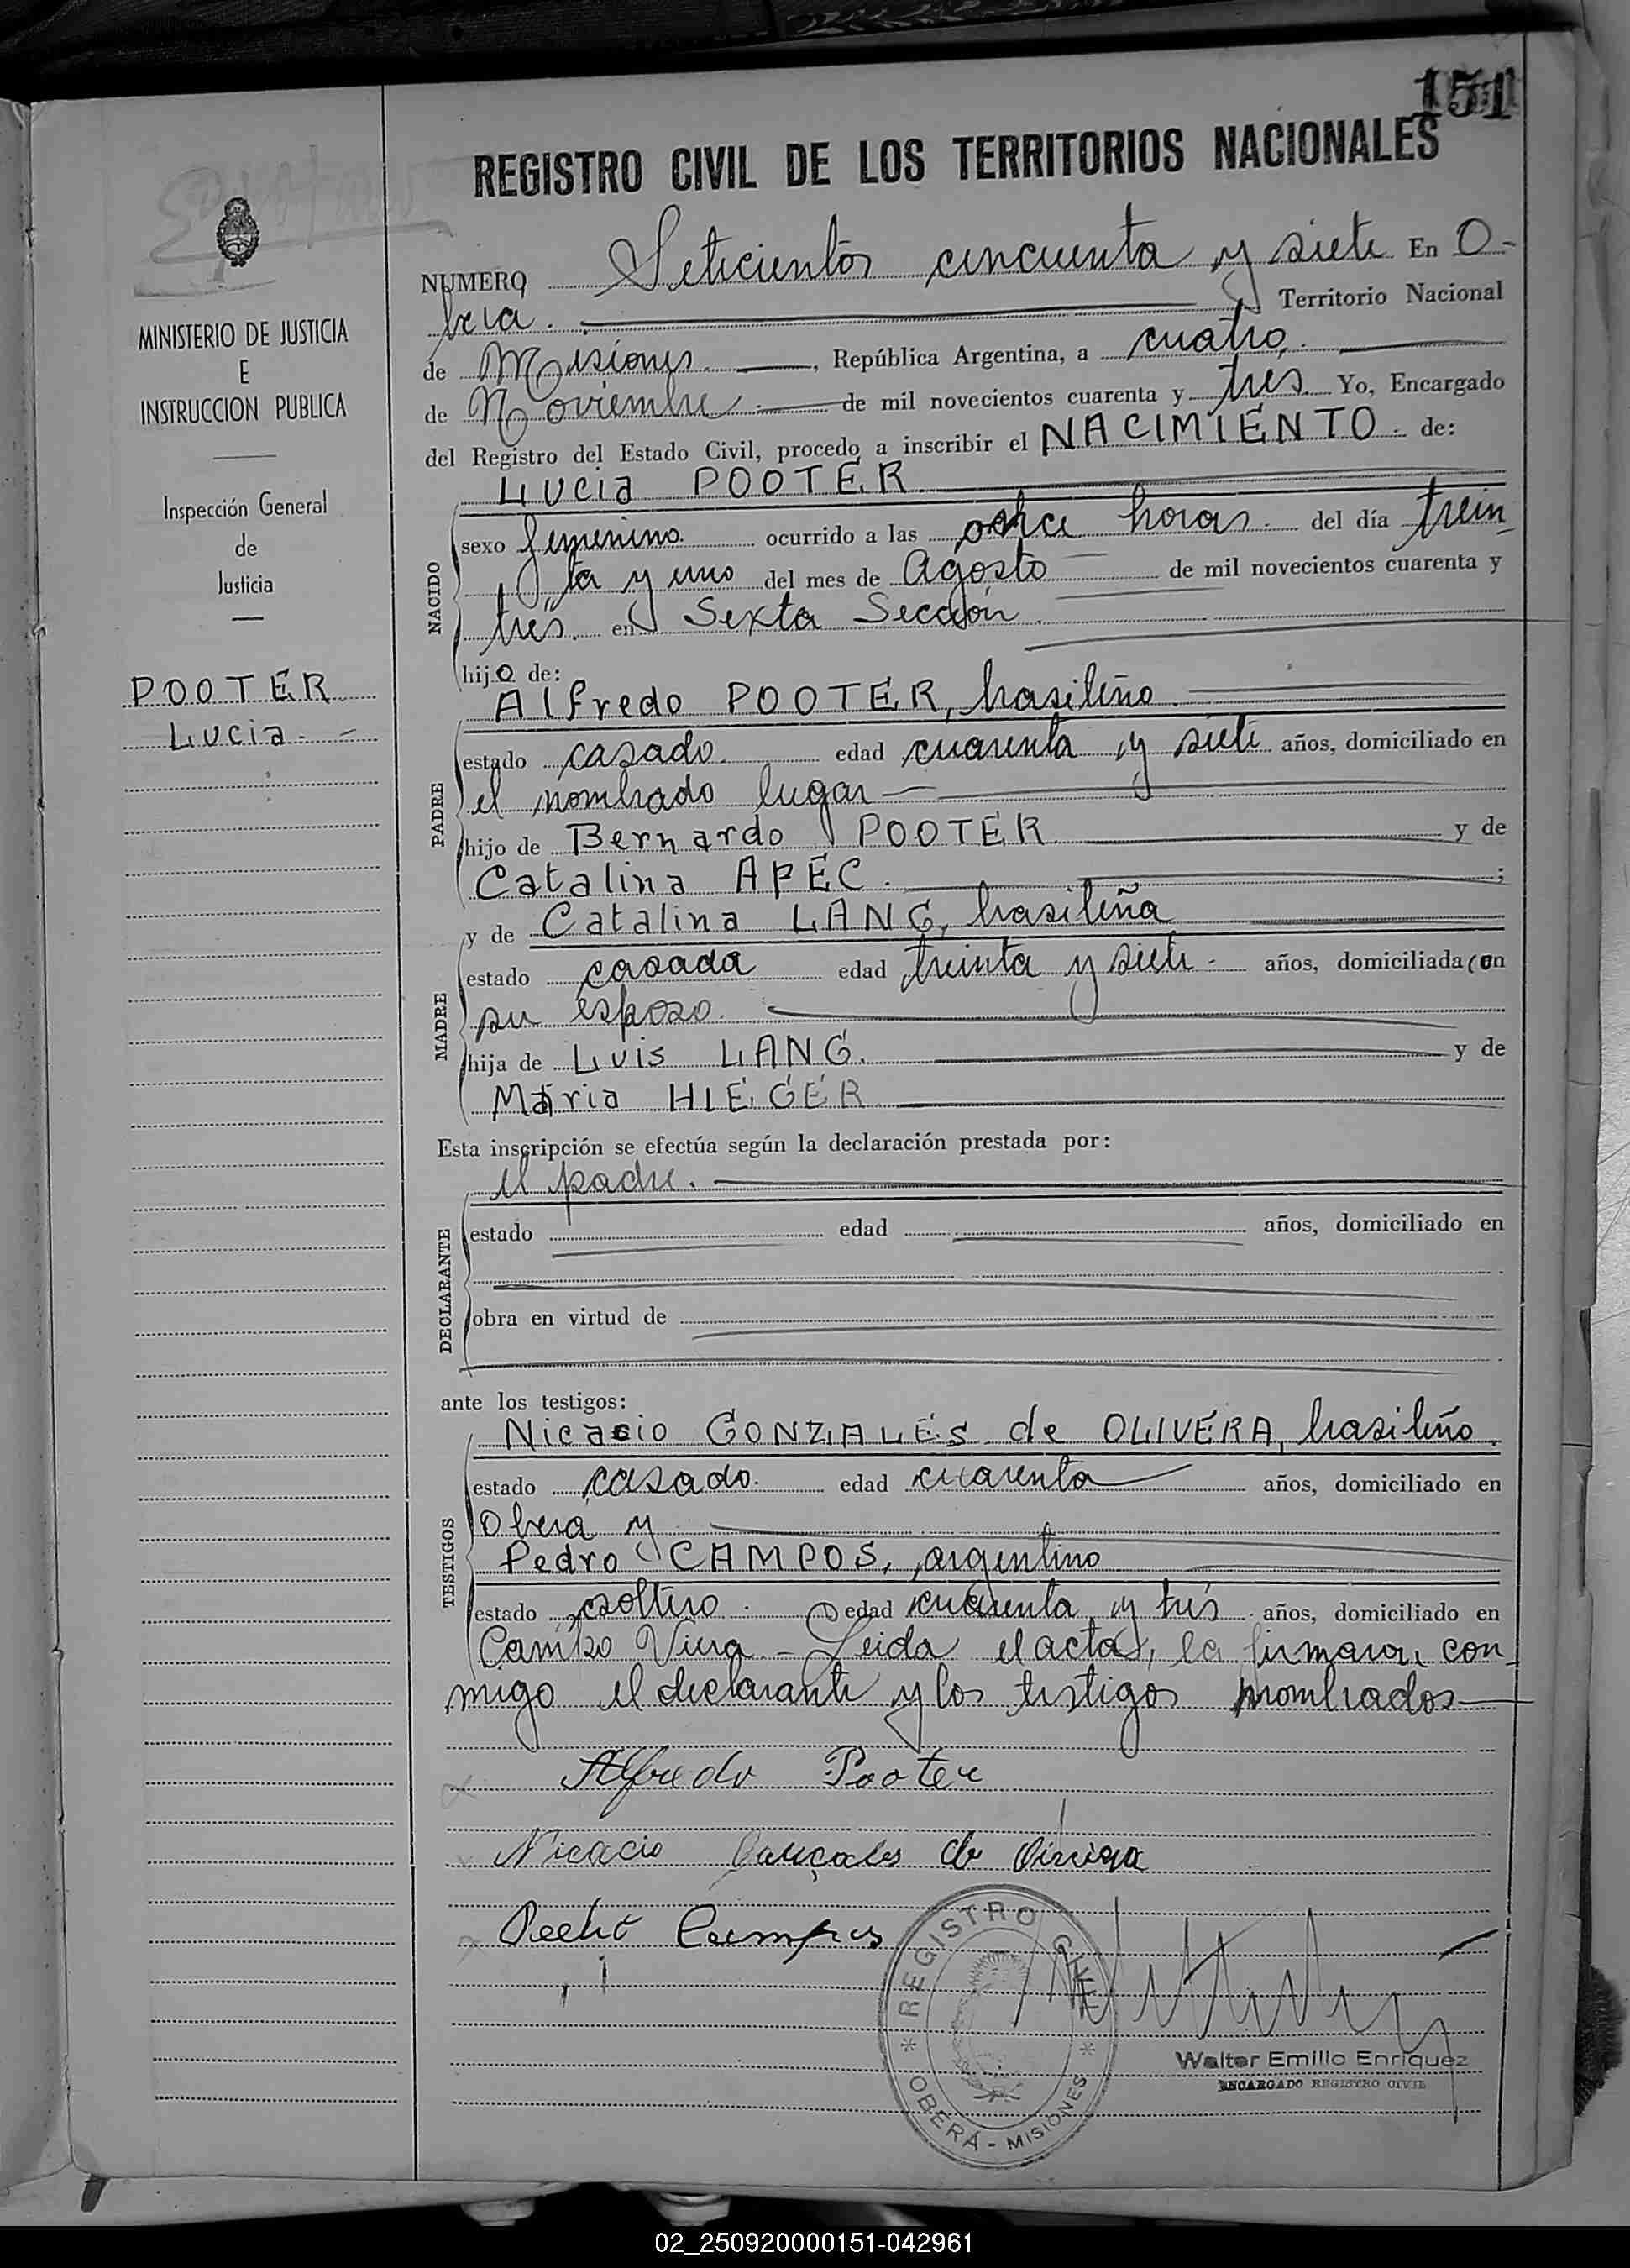 151
REGISTRO CIVIL DE LOS TERRITORIOS NACIONALES
NUMERO Seticientos cincuenta y siete En O-
bera. Territorio Nacional
de Misiones. , República Argentina, a cuatro.
de Noviembre de mil novecientos cuarenta y tres. Yo, Encargado
del Registro del Estado Civil, procedo a inscribir el NACIMIENTO. de:
Lucia POOTER
NACIDO
sexo femenino. ocurrido a las horas. del día trein
ta y uno del mes de Agosto de mil novecientos cuarenta y
tres. en Sexta Sección.
hijo de:
Alfredo POOTER, brasileño.
PADRE
estado casado. edad cuarenta y siete años, domiciliado en
el nombrado lugar
hijo de Bernardo POOTER y de
Catalina APEC. ;
y de Catalina LANG, brasileña
MADRE
estado casada edad treinta y siete. años, domiciliada con
su esposo.
hija de Luis LANG. y de
Maria HIEGER
Esta inscripción se efectúa según la declaración prestada por:
el padre.
DECLARANTE
estado edad años, domiciliado en
obra en virtud de
ante los testigos:
Nicacio GONZALES de OLIVERA, brasileño.
TESTIGOS
estado casado. edad cuarenta años, domiciliado en
Obera y
Pedro CAMPOS, argentino
estado soltero. edad cuarenta y tres. años, domiciliado en
Campo Viera - Leida el acta, la firmaron con
migo el declarante y los testigos nombrados
Alfredo Pooter
Nicacio Gonçales de
Pedro Campos
REGISTRO CIVIL
OBERÁ - MISIONES
Walter Emilio Enriquez
ENCARGADO REGISTRO CIVIL
MINISTERIO DE JUSTICIA
E
INSTRUCCION PUBLICA
Inspección General
de
Justicia
POOTER
Lucia.
02_250920000151-042961